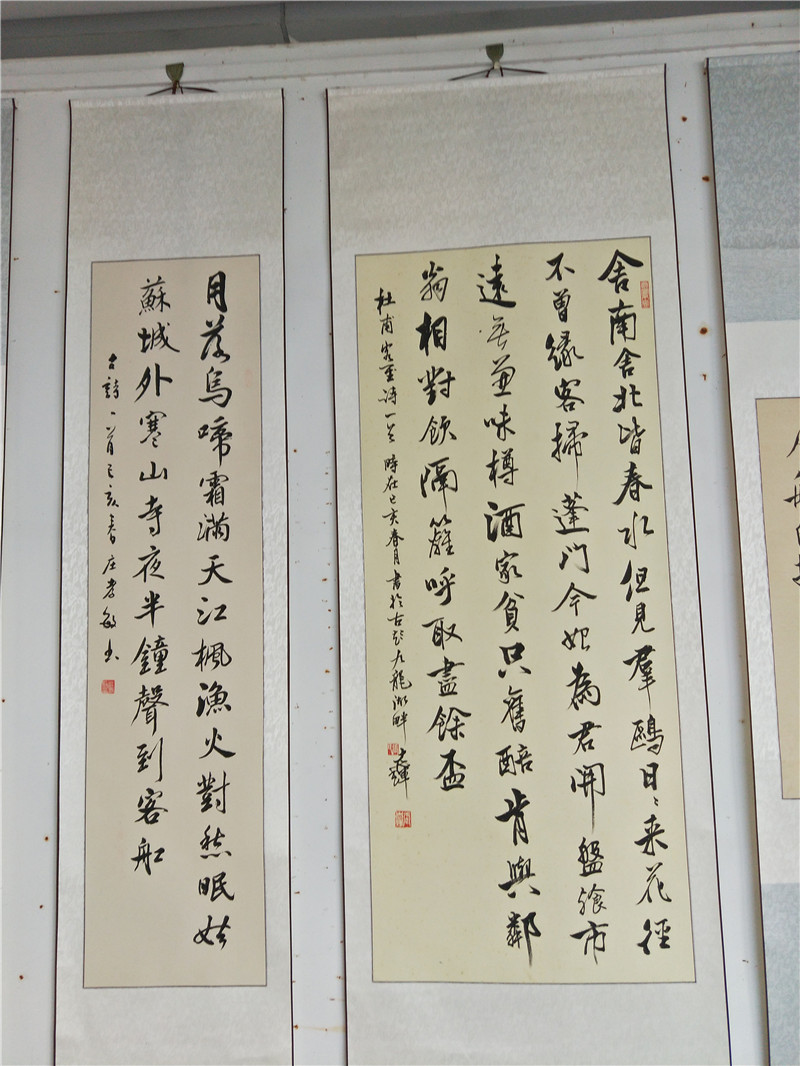 舍南舍北皆春水但見羣鷗日〻来花徑
不曾緣客掃蓬門今始為君開盤飱市
遠無兼味樽酒家貧只舊醅肯與鄰
翁相對飲隔籬呼取盡餘盃
杜甫客至诗一首 時在己亥春月書於古彭九龍湖畔
月落烏啼霜滿天江楓漁火對愁眠姑
蘇城外寒山寺夜半鐘聲到客船
古詩一首己亥春庄孝敏书